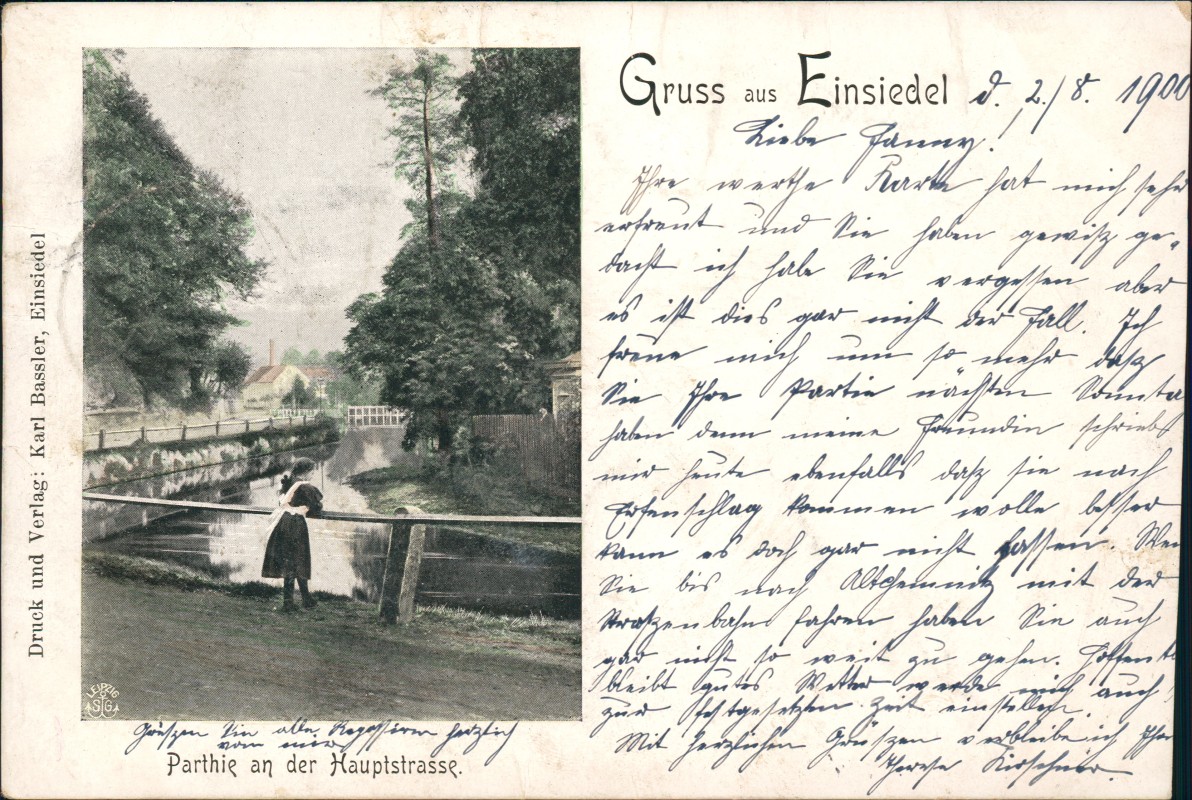 Gruss aus Einsiedel d. 2./8. 1900
Liebe Fanny!
Ihre werthe Karte hat mich sehr
erfreut und Sie haben gewiß ge-
dacht ich habe Sie vergessen aber
es ist dies gar nicht der Fall. Ich
freue mich um so mehr daß
Sie Ihre Partie nächsten Sonnta
haben denn meine Freundin schrieb
mir heute ebenfalls daß sie nach
Erfenschlag kommen wolle besser
kann es doch gar nicht passen. Wen
Sie bis nach Altchemnitz mit der
Straßenbahn fahren haben Sie auch
gar nicht so weit zu gehen. Hoffentl
bleibt gutes Wetter werde mich auch
zur festgesetzten Zeit einstellen.
Mit herzlichen Grüßen verbleibe ich Ihre
Therese Kirschner.
Grüßen Sie alle herzlich
von mir
Parthie an der Hauptstrasse.
Druck und Verlag: Karl Bassler, Einsiedel
LEIPZIG
STG